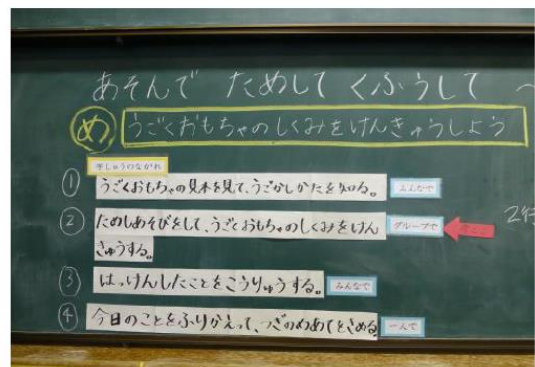 あそんで ためして くふうして ～
め うごくおもちゃのしくみをけんきゅうしよう
学しゅうのながれ
① うごくおもちゃの見本を見て、うごかしかたを知る。 みんなで
② ためしあそびをして、うごくおもちゃのしくみをけん グループで
きゅうする。
③ はっけんしたことをこうりゅうする。 みんなで
④ 今日のことをふりかえって、つぎのめあてをきめる 一人で